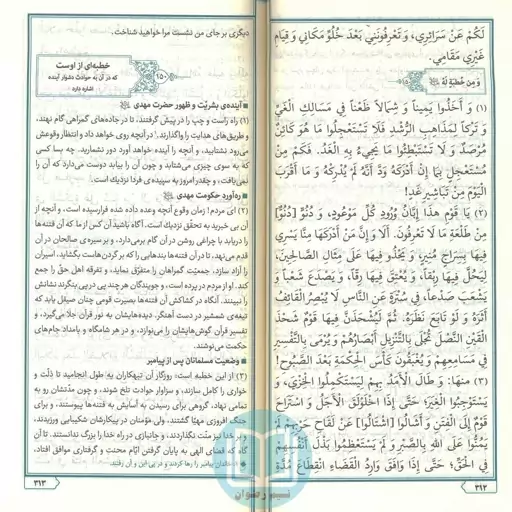 لَكُمْ عَنْ سَرَائِرِي، وَ تَعْرِفُونَنِي بَعْدَ خُلُوِّ مَكَانِي وَ قِيَامِ
غَيْرِي مَقَامِي.
وَ مِن خُطبَةٍ لَهُ
(۱) وَ أَخَذُوا يَمِيناً وَ شِمَالاً ظَعْناً فِي مَسَالِكِ الْغَيِّ
وَ تَرْكاً لِمَذَاهِبِ الرُّشْدِ فَلَا تَسْتَعْجِلُوا مَا هُوَ كَائِنٌ
مُرْصَدٌ وَ لَا تَسْتَبْطِئُوا مَا يَجِيءُ بِهِ الْغَدُ. فَكَمْ مِنْ
مُسْتَعْجِلٍ بِمَا إِنْ أَدْرَكَهُ وَدَّ أَنَّهُ لَمْ يُدْرِكْهُ وَ مَا أَقْرَبَ
الْيَوْمَ مِنْ تَبَاشِيرِ غَدٍ!
(۲) يَا قَوْمِ هٰذَا إِبَّانُ وُرُودِ كُلِّ مَوْعُودٍ، وَ دُنُوٌّ
مِنْ طَلْعَةِ مَا لَا تَعْرِفُونَ. أَلَا وَ إِنَّ مَنْ أَدْرَكَهَا مِنَّا يَسْرِي
فِيهَا بِسِرَاجٍ مُنِيرٍ، وَ يَحْذُو فِيهَا عَلَى مِثَالِ الصَّالِحِينَ،
لِيَحُلَّ فِيهَا رِبْقاً، وَ يُعْتِقَ فِيهَا رِقّاً، وَ يَصْدَعَ شَعْباً وَ
يَشْعَبَ صَدْعاً، فِي سُتْرَةٍ عَنِ النَّاسِ لَا يُبْصِرُ الْقَائِفُ
أَثَرَهُ وَ لَوْ تَابَعَ نَظَرَهُ. ثُمَّ لَيُشْحَذَنَّ فِيهَا قَوْمٌ شَحْذَ
الْقَيْنِ النَّصْلَ تُجْلَى بِالتَّنْزِيلِ أَبْصَارُهُمْ وَ يُرْمَى بِالتَّفْسِيرِ
فِي مَسَامِعِهِمْ وَ يُغْبَقُونَ كَأْسَ الْحِكْمَةِ بَعْدَ الصَّبُوحِ!
(۳) منها: وَ طَالَ الْأَمَدُ بِهِمْ لِيَسْتَكْمِلُوا الْخِزْيَ، وَ
يَسْتَوْجِبُوا الْغِيَرَ؛ حَتَّى إِذَا اخْلَوْلَقَ الْأَجَلُ وَ اسْتَرَاحَ
قَوْمٌ إِلَى الْفِتَنِ وَ أَشَالُوا عَنْ لَقَاحِ حَرْبِهِمْ لَمْ
يَمُنُّوا عَلَى اللهِ بِالصَّبْرِ وَ لَمْ يَسْتَعْظِمُوا بَذْلَ أَنْفُسِهِمْ
فِي الْحَقِّ؛ حَتَّى إِذَا وَافَقَ وَارِدُ الْقَضَاءِ انْقِطَاعَ مُدَّةِ
۳۱۲
دیگری بر جای من نشست مرا خواهید شناخت.
خطبه‌ای از اوست
۱۵۰
که در آن به حوادث دشوار آینده
اشاره دارد
آینده‌ی بشریّت و ظهور حضرت مهدی
(۱) راه راست و چپ را در پیش گرفتند، تا در جاده‌های گمراهی گام نهند،
و طریق‌های هدایت را واگذارند. در آنچه روی خواهد داد و انتظار وقوعش
می‌رود نشتابید، و آنچه را آینده خواهد آورد دور نشمارید. چه بسا کسی
که به سوی چیزی می‌شتابد و چون آن را بیابد دوست می‌دارد که آن را
نمی‌یافت، و چقدر امروز به سپیده‌ی فردا نزدیک است.
ره‌آورد حکومت مهدی
(۲) ای مردم! زمان وقوع آنچه وعده داده شده فرارسیده است، و آنچه از
آن بی خبرید به تحقق نزدیک است. آگاه باشید آن کس از ما که آن فتنه‌ها
را دریابد با چراغی روشن در آن گام برمی‌دارد، و بر سیره‌ی صالحان در آن
قدم می‌نهد، تا در آن فتنه‌ها بندهایی را که بر گردن‌هاست بگشاید، اسیران
را آزاد سازد، جمعیّت گمراهان را متفرّق نماید، و تفرقه اهل حق را جمع
کند. او از مردم در پرده است، و جویندگان هر چند پی در پی بنگرند نشانش
را نبینند. آنگاه در کشاکش آن فتنه‌ها بصیرت قومی چنان صیقل یابد که
تیغه‌ی شمشیر در دست آهنگر. دیده‌هایشان به نور قرآن جلا می‌گیرد، و
تفسیر قرآن گوش‌هایشان را می‌نوازد، و در هر شامگاه و بامداد جام‌های
حکمت می‌نوشند.
وضعیت مسلمانان پس از پیامبر
(۳) از این خطبه است: روزگار آن تبهکاران به طول انجامید تا ذلّت و
خواری را کامل سازند، و سزاوار حوادث تلخ شوند، و چون مدّتشان رو به
تمامی نهاد، گروهی برای رسیدن به آسایش به فتنه‌ها پیوستند، و برای
جنگ افروزی مهیّا گشتند، ولی مؤمنان در پیکارشان شکیبایی ورزیدند،
و بر خدا نیز منّت نگذاردند، و جانبازی در راه خدا را بزرگ ندانستند. تا آن
گاه که قضای الهی به پایان گرفتن ایّام محنت و گرفتاری موافق افتاد،
۳۱۳
نسیم رضوان